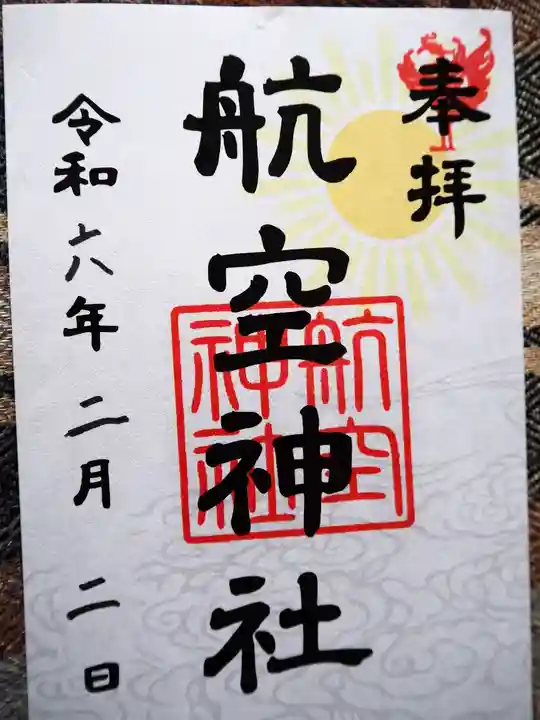 奉拝
航空神社
航空
神社
令和六年二月二日